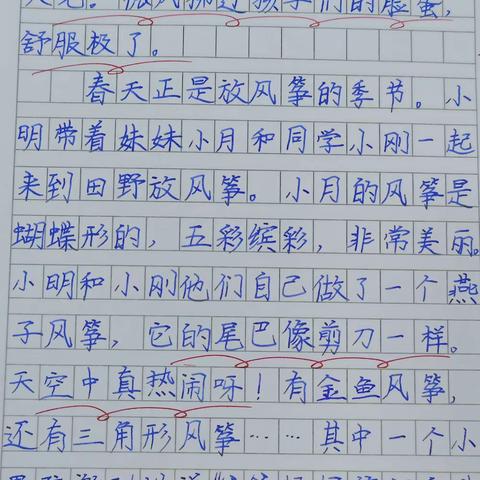 微风拂过孩子们的脸蛋,
舒服极了。
春天正是放风筝的季节。小
明带着妹妹小月和同学小刚一起
来到田野放风筝。小月的风筝是
蝴蝶形的,五彩缤彩,非常美丽。
小明和小刚他们自己做了一个燕
子风筝,它的尾巴像剪刀一样。
天空中真热闹呀!有金鱼风筝,
还有三角形风筝……其中一个小